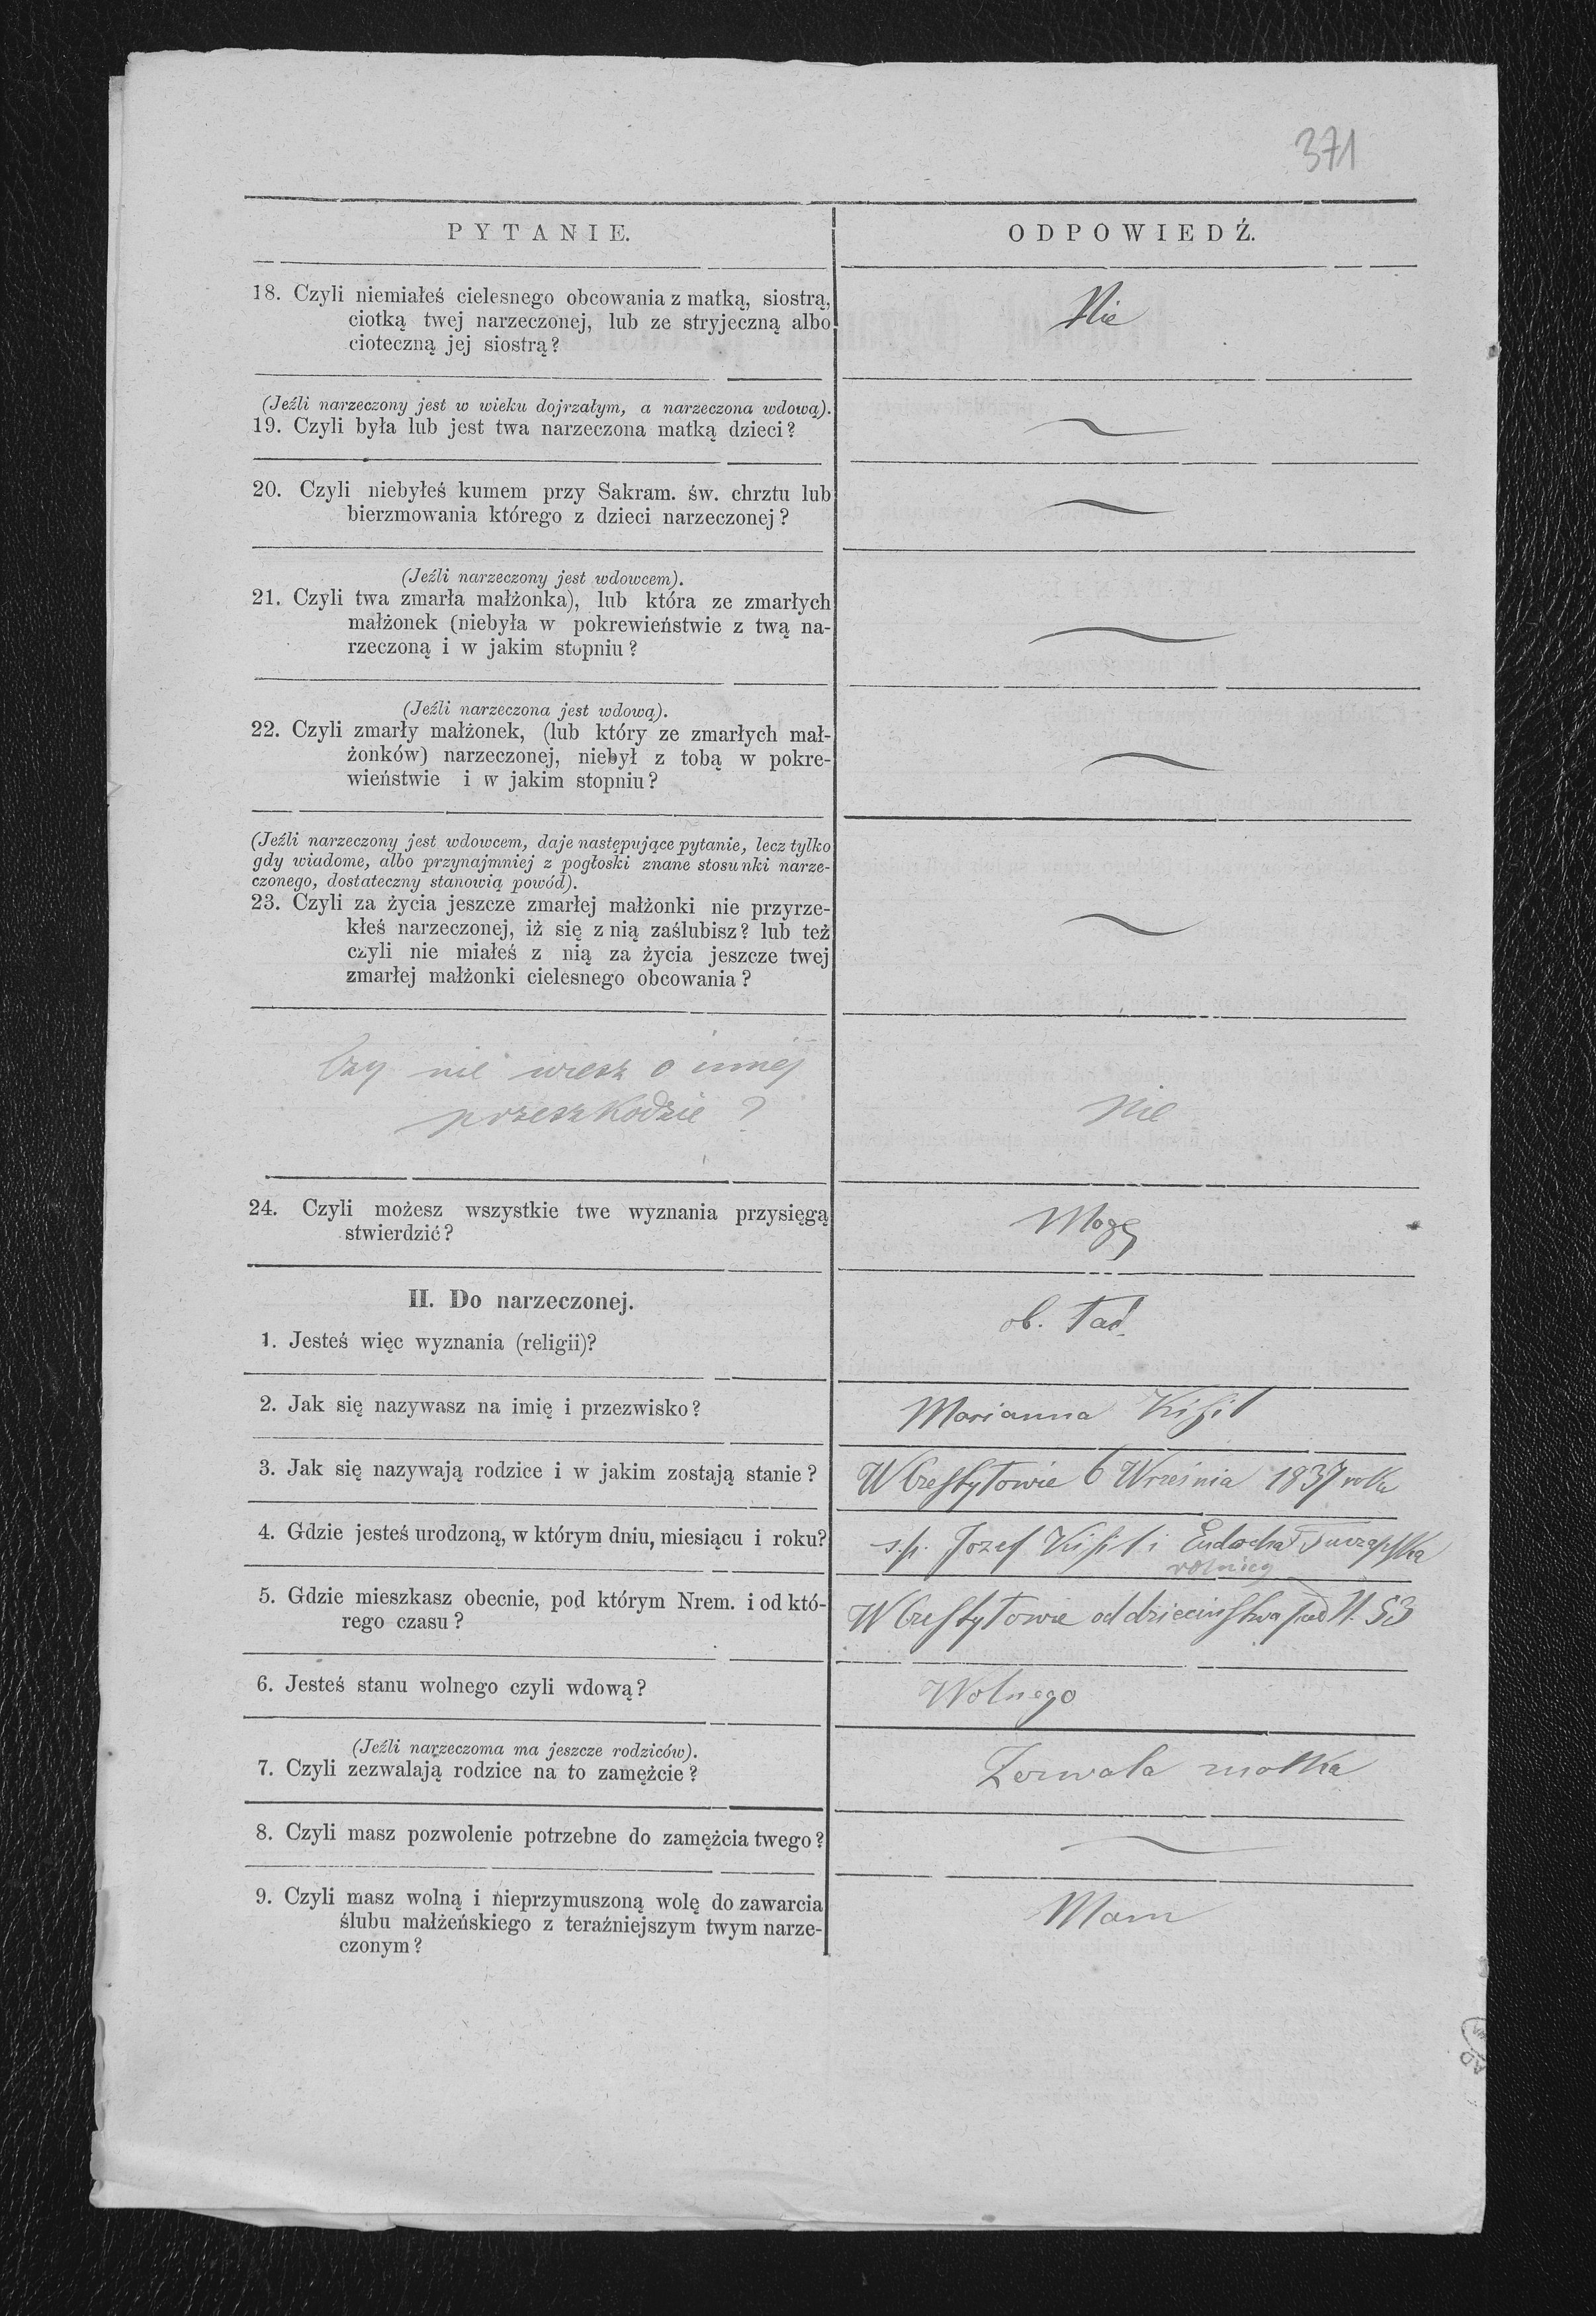 371
PYTANIE.
ODPOWIEDŹ.
18. Czyli niemiałeś cielesnego obcowania z matką, siostrą,
ciotką twej narzeczonej, lub ze stryjeczną albo
cioteczną jej siostrą?
Nie
(Jeźli narzeczony jest w wieku dojrzałym, a narzeczona wdową).
19. Czyli była lub jest twa narzeczona matką dzieci?
20. Czyli niebyłeś kumem przy Sakram. św. chrztu lub
bierzmowania którego z dzieci narzeczonej?
(Jeźli narzeczony jest wdowcem).
21. Czyli twa zmarła małżonka), lub która ze zmarłych
małżonek (niebyła w pokrewieństwie z twą na-
rzeczoną i w jakim stopniu?
(Jeźli narzeczona jest wdową).
22. Czyli zmarły małżonek, (lub który ze zmarłych mał-
żonków) narzeczonej, niebył z tobą w pokre-
wieństwie i w jakim stopniu?
(Jeźli narzeczony jest wdowcem, daje następujące pytanie, lecz tylko
gdy wiadome, albo przynajmniej z pogłoski znane stosunki narze-
czonego, dostateczny stanowią powód).
23. Czyli za życia jeszcze zmarłej małżonki nie przyrze-
kłeś narzeczonej, iż się z nią zaślubisz? lub też
czyli nie miałeś z nią za życia jeszcze twej
zmarłej małżonki cielesnego obcowania?
Czy nie wiesz o innéj
przeszkodzie?
nie
24. Czyli możesz wszystkie twe wyznania przysięgą
stwierdzić?
Mogę
II. Do narzeczonej.
1. Jesteś więc wyznania (religii)?
ob. łac.
2. Jak się nazywasz na imię i przezwisko?
Marianna Kisil
3. Jak się nazywają rodzice i w jakim zostają stanie?
W 6 Września 1837 roku
4. Gdzie jesteś urodzoną, w którym dniu, miesiącu i roku?
s.p. Jozef Kisil i Eudocha
rolnicy
5. Gdzie mieszkasz obecnie, pod którym Nrem. i od któ-
rego czasu?
W od dzieciństwa pod N. 53
6. Jesteś stanu wolnego czyli wdową?
Wolnego
(Jeźli narzeczoma ma jeszcze rodziców).
7. Czyli zezwalają rodzice na to zamężcie?
Zezwala matka
8. Czyli masz pozwolenie potrzebne do zamężcia twego?
9. Czyli masz wolną i nieprzymuszoną wolę do zawarcia
ślubu małżeńskiego z teraźniejszym twym narze-
czonym?
Mam